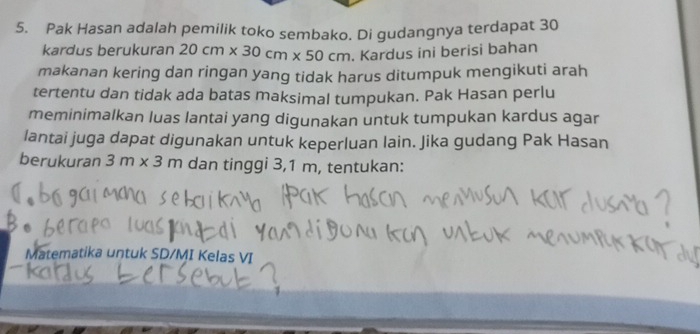 5. Pak Hasan adalah pemilik toko sembako. Di gudangnya terdapat 30
kardus berukuran 20 cm x 30 cm x 50 cm. Kardus ini berisi bahan
makanan kering dan ringan yang tidak harus ditumpuk mengikuti arah
tertentu dan tidak ada batas maksimal tumpukan. Pak Hasan perlu
meminimalkan luas lantai yang digunakan untuk tumpukan kardus agar
lantai juga dapat digunakan untuk keperluan lain. Jika gudang Pak Hasan
berukuran 3 m x 3 m dan tinggi 3,1 m, tentukan:
sebaiknya Pak hasan menyusun kardusnya?
B. berapa luas yang digunakan untuk menumpuk kardus
Matematika untuk SD/MI Kelas VI
-kardus bersebut?